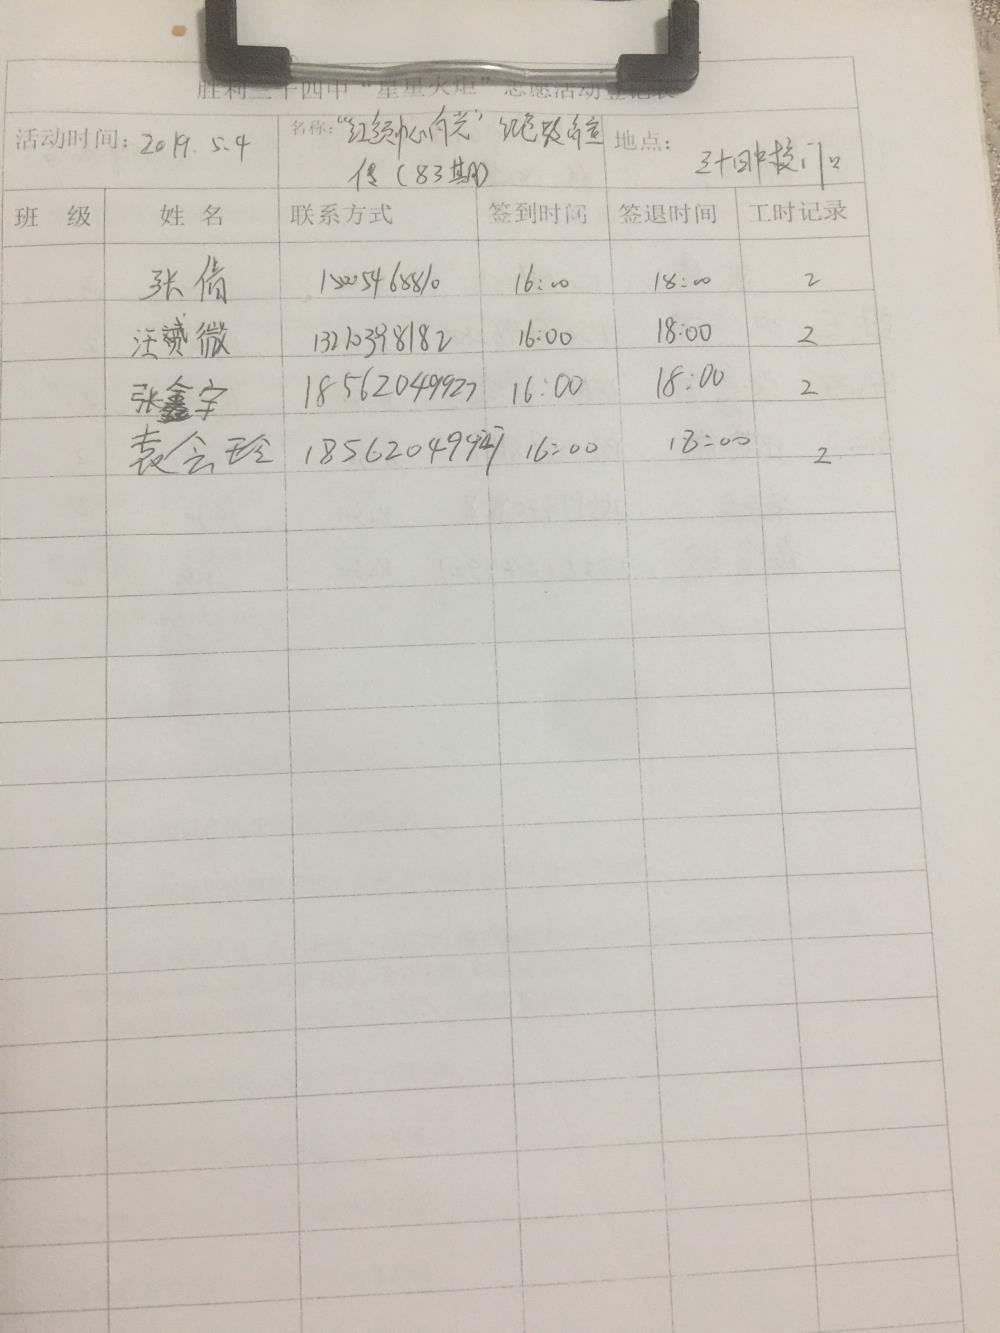 胜利三十四中“星星火炬”志愿活动登记表
活动时间: 2019. 5.4 名称: “红领巾心向党” 红色故事宣 地点: 三十四中校门口
传 (83期)
班 级 姓 名 联系方式 签到时间 签退时间 工时记录
张倩 16:00 18:00 2
汪 微 13210398182 16:00 18:00 2
张鑫宇 18562049927 16:00 18:00 2
袁会珍 16:00 18:00 2